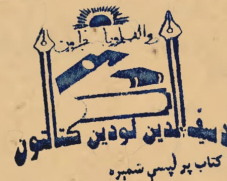 والقلم وما يسطرون
د سیف الدین لودین کتابتون
کتاب پرلپسی نمبره